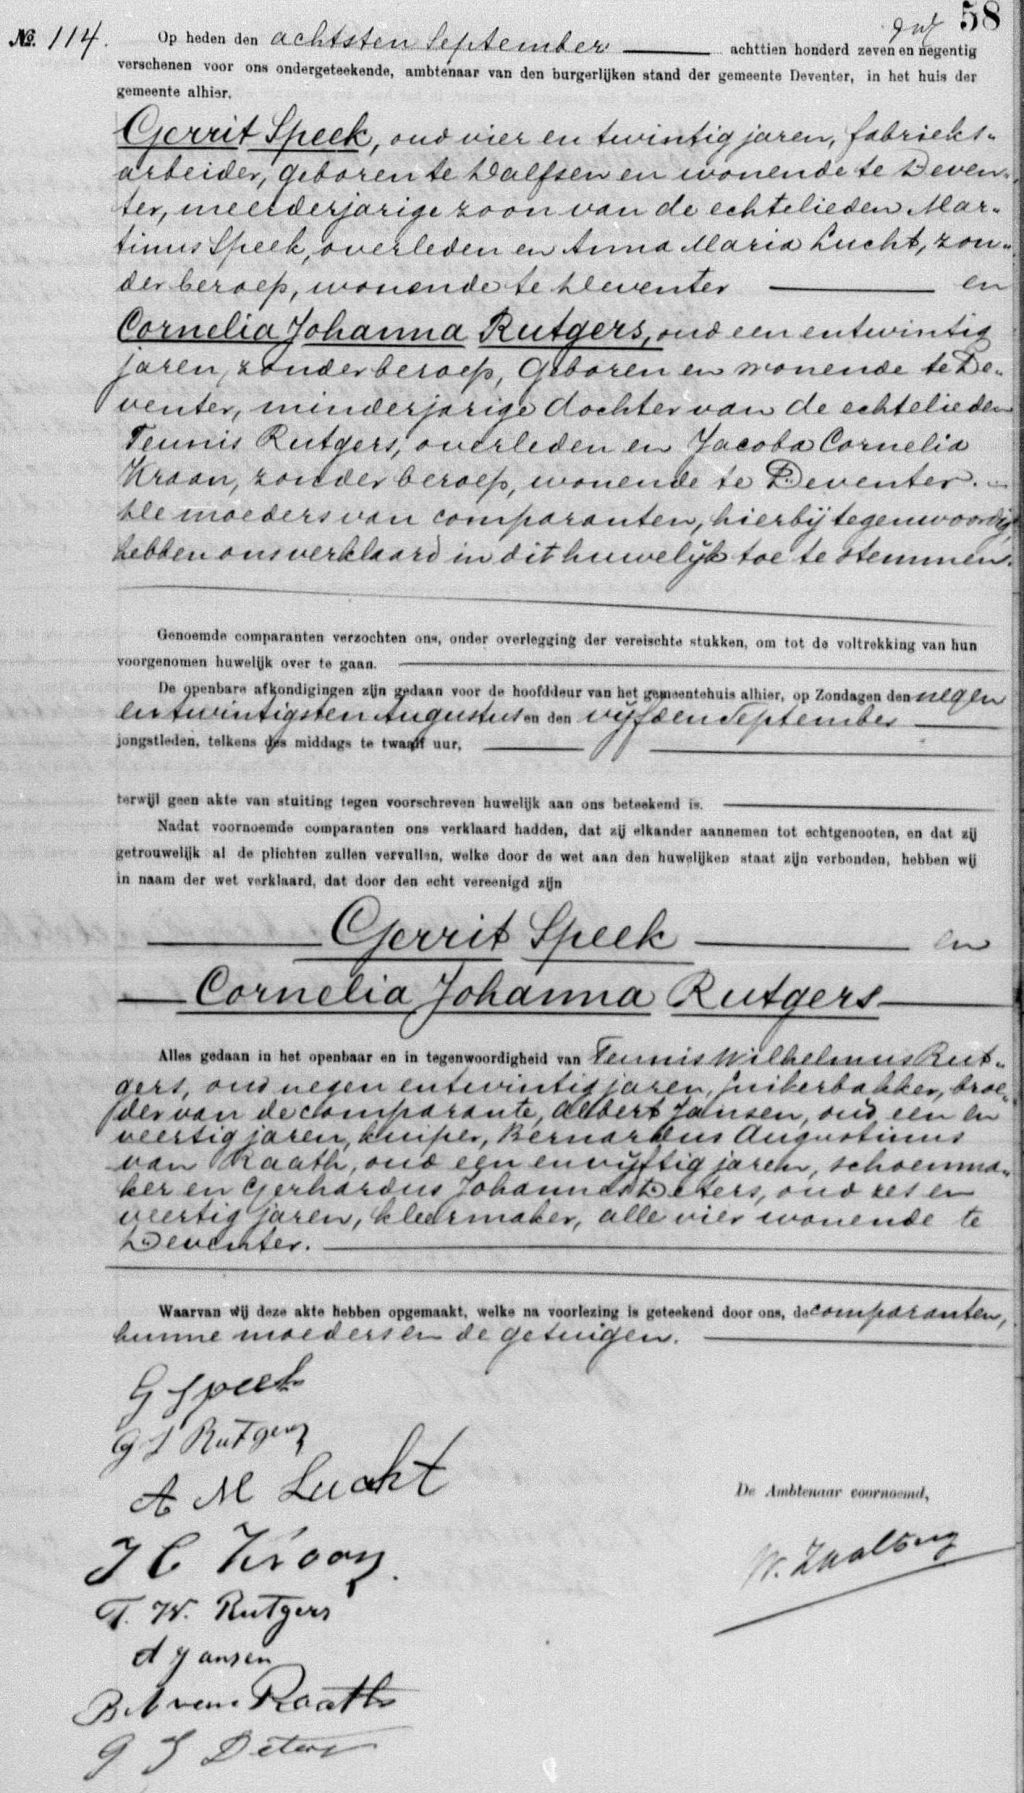 58
No. 114. Op heden den achtsten September achttien honderd zeven en negentig
verschenen voor ons ondergeteekende, ambtenaar van den burgerlijken stand der gemeente Deventer, in het huis der
gemeente alhier,
Gerrit Speek, oud vier en twintig jaren, fabrieks-
arbeider, geboren te Dalfsen en wonende te Deven-
ter, meerderjarige zoon van de echtelieden Mar-
tinus Speek, overleden en Anna Maria Lucht, zon-
der beroep, wonende te Deventer en
Cornelia Johanna Rutgers, oud een en twintig
jaren, zonder beroep, geboren en wonende te De-
venter, minderjarige dochter van de echtelieden
Teunis Rutgers, overleden en Jacoba Cornelia
Kraan, zonder beroep, wonende te Deventer.
De moeders van comparanten, hierbij tegenwoordig,
hebben ons verklaard in dit huwelijk toe te stemmen.
Genoemde comparanten verzochten ons, onder overlegging der vereischte stukken, om tot de voltrekking van hun
voorgenomen huwelijk over te gaan.
De openbare afkondigingen zijn gedaan voor de hoofddeur van het gemeentehuis alhier, op Zondagen den negen
en twintigsten Augustus en den vijfden September
jongstleden, telkens des middags te twaalf uur,
terwijl geen akte van stuiting tegen voorschreven huwelijk aan ons beteekend is.
Nadat voornoemde comparanten ons verklaard hadden, dat zij elkander aannemen tot echtgenooten, en dat zij
getrouwelijk al de plichten zullen vervullen, welke door de wet aan den huwelijken staat zijn verbonden, hebben wij
in naam der wet verklaard, dat door den echt vereenigd zijn
Gerrit Speek en
Cornelia Johanna Rutgers
Alles gedaan in het openbaar en in tegenwoordigheid van Teunis Wilhelmus Rut-
gers, oud negen en twintig jaren, suikerbakker, broe-
der van de comparante, Albert Jansen, oud een en
veertig jaren, kuiper, Bernardus Augustinus
van Raath, oud een en vijftig jaren, schoenma-
ker en Gerhardus Johannes Deters, oud zes en
veertig jaren, kleermaker, alle vier wonende te
Deventer.
Waarvan wij deze akte hebben opgemaakt, welke na voorlezing is geteekend door ons, de comparanten,
hunne moeders en de getuigen.
G Speek
C J Rutgers
A M Lucht
J C Kraan
De Ambtenaar voornoemd,
T. W. Rutgers
A Jansen
B A van Raath
G J Deters